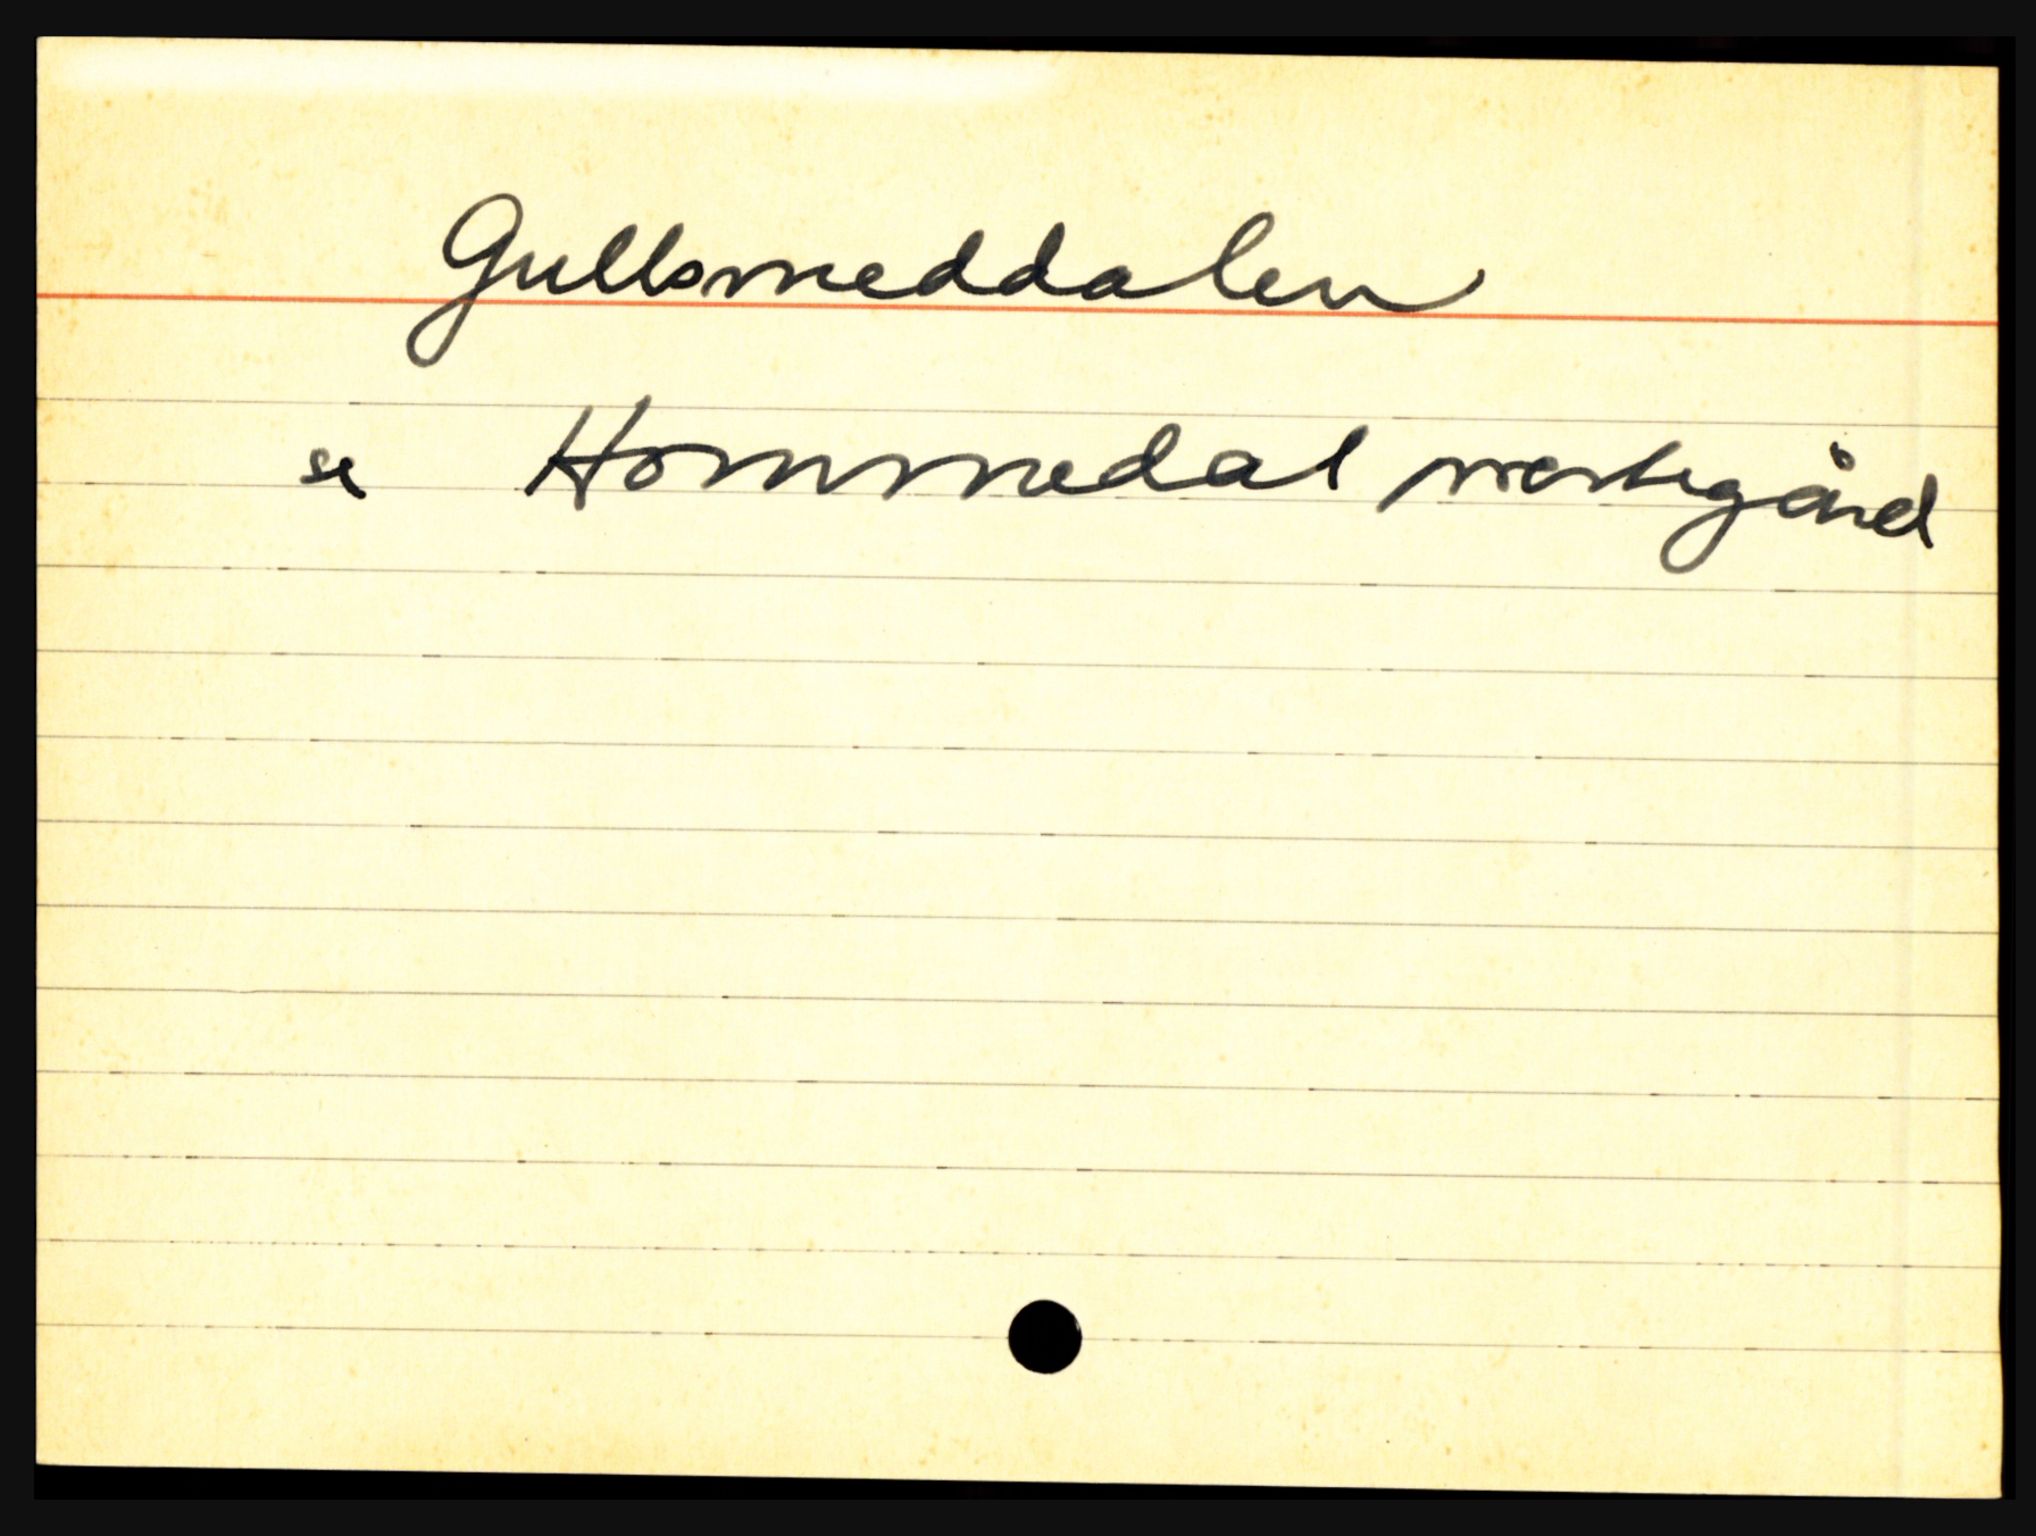 Gullsmeddalen
se Hommedal prestegård